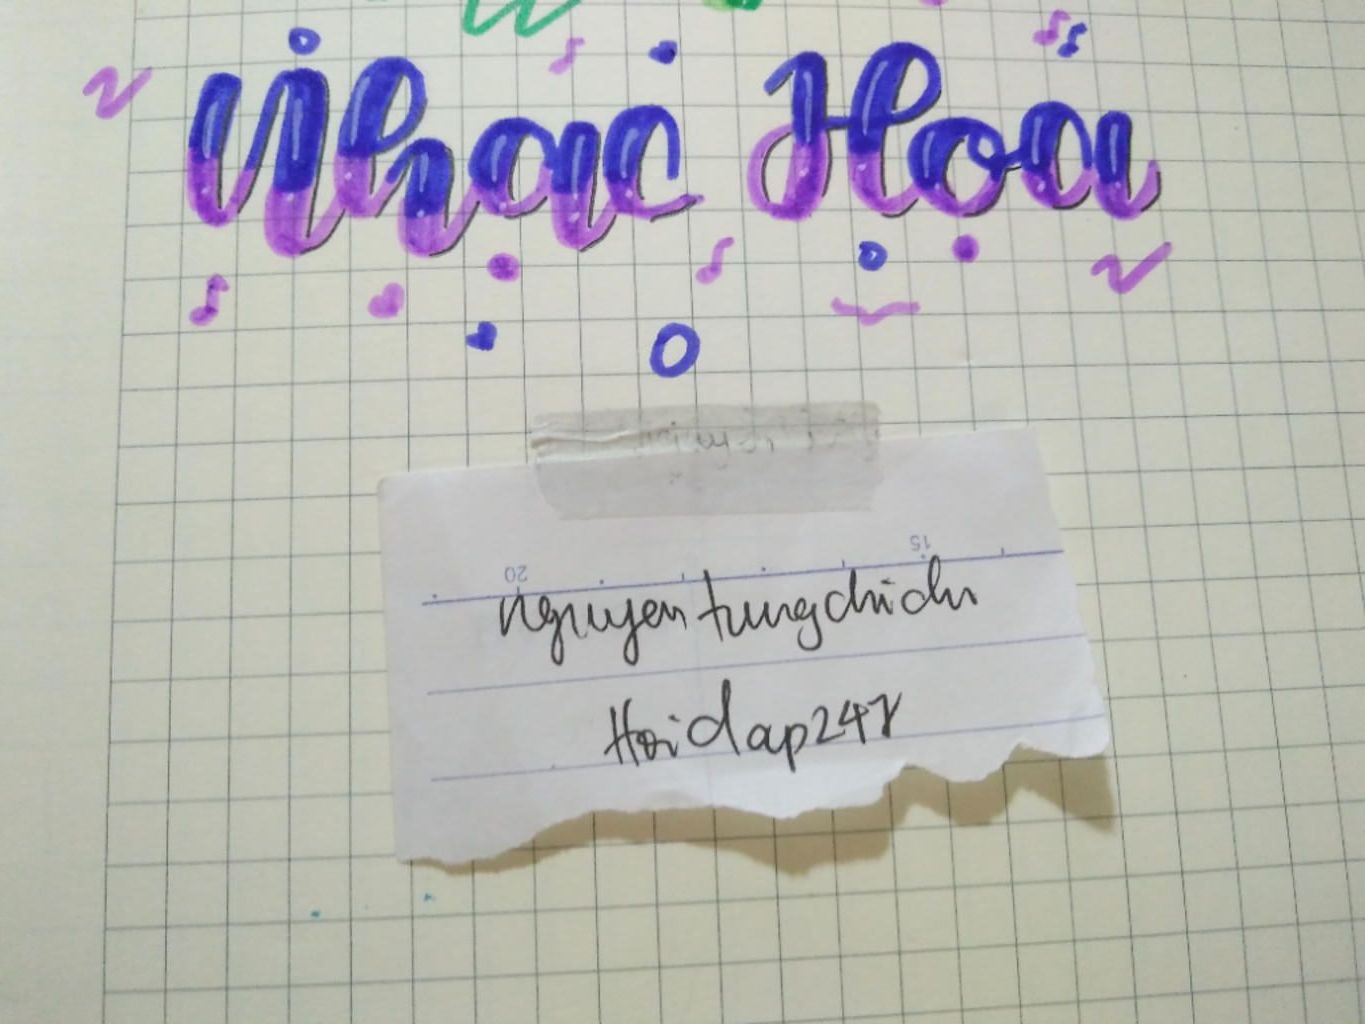 Nhạc Họa
20 15
nguyentungchichi
Hoidap247